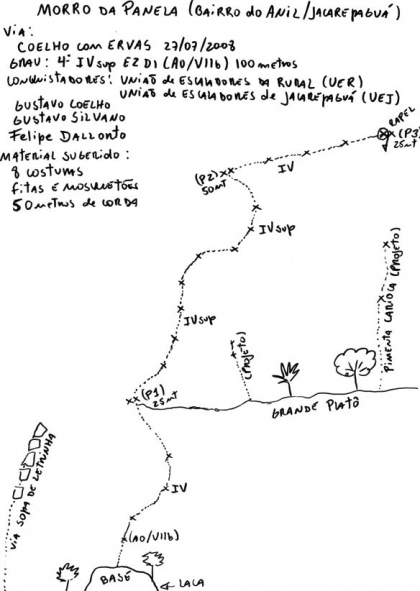 MORRO DA PANELA (BAIRRO do ANIL/JACAREPAGUÁ)
VIA:
COELHO com ERVAS 27/07/2008
GRAU: 4º IVsup E2 D1 (A0/VIIb) 100 metros
CONQUISTADORES: UNIÃO de ESCALADORES DA RURAL (UER)
UNIÃO de ESCALADORES de JACAREPAGUÁ (UEJ)
GUSTAVO COELHO
GUSTAVO SILVANO
Felipe DALLONTO
MATERIAL SUGERIDO:
8 costuras
fitas E MOSQUETÕES
50 metros de CORDA
RAPEL
(P3)
25mt
IV
(P2)
50mt
IVsup
IVsup
(PROJETO)
PIMENTA CARIOCA (PROJETO)
(P1)
25mt
GRANDE PLATÔ
VIA SOPA DE LETRINHA
IV
(A0/VIIb)
BASE
LACA